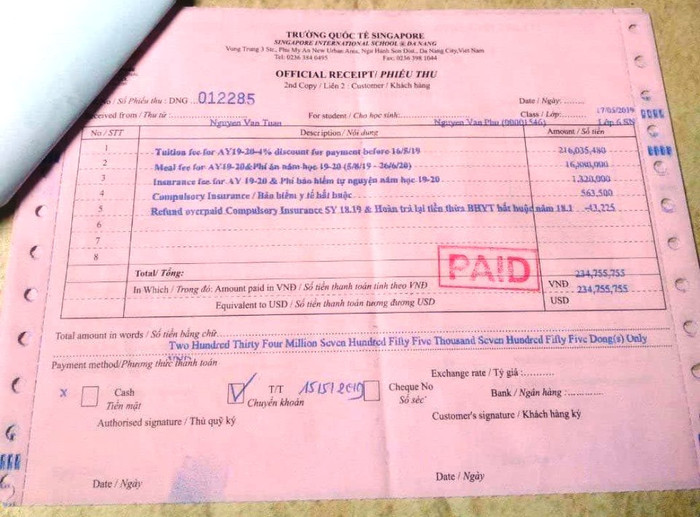 TRƯỜNG QUỐC TẾ SINGAPORE
SINGAPORE INTERNATIONAL SCHOOL @ DA NANG
Vung Trung 3 Str., Phu My An New Urban Area, Ngu Hanh Son Dist., Da Nang City, Viet Nam
Tel: 0236 384 0495 Fax: 0236 398 1044
OFFICIAL RECEIPT/ PHIẾU THU
2nd Copy / Liên 2 : Customer / Khách hàng
No / Số Phiếu thu : DNG 012285 Date / Ngày: 17/05/2019
Received from / Thu từ : Nguyen Van Tuan For student / Cho học sinh: Nguyen Van Phu (00001546) Class / Lớp: Lớp 6 SN
No / STT Description / Nội dung Amount / Số tiền
1 Tuition fee for AY19-20-4% discount for payment before 16/5/19 216,035,480
2 Meal fee for AY19-20&Phí ăn năm học 19-20 (5/8/19 - 26/6/20) 16,880,000
3 Insurance fee for AY 19-20 & Phí bảo hiểm tự nguyện năm học 19-20 1,320,000
4 Compulsory Insurance / Bảo hiểm y tế bắt buộc 563,500
5 Refund overpaid Compulsory Insurance SY 18.19 & Hoàn trả lại tiền thừa BHYT bắt buộc năm 18.1 -43,225
6
7
8
PAID
Total/ Tổng: 234,755,755
In Which / Trong đó: Amount paid in VNĐ / Số tiền thanh toán tính theo VNĐ VNĐ 234,755,755
Equivalent to USD / Số tiền thanh toán tương đương USD USD
Total amount in words / Số tiền bằng chữ
Two Hundred Thirty Four Million Seven Hundred Fifty Five Thousand Seven Hundred Fifty Five Dong(s) Only
Payment method/Phương thức thanh toán Exchange rate / Tỷ giá :
x Cash T/T 15/5/2019 Cheque No Bank / Ngân hàng :
Tiền mặt Chuyển khoản Số séc
Authorised signature / Thủ quỹ ký Customer's signature / Khách hàng ký
Date / Ngày Date / Ngày